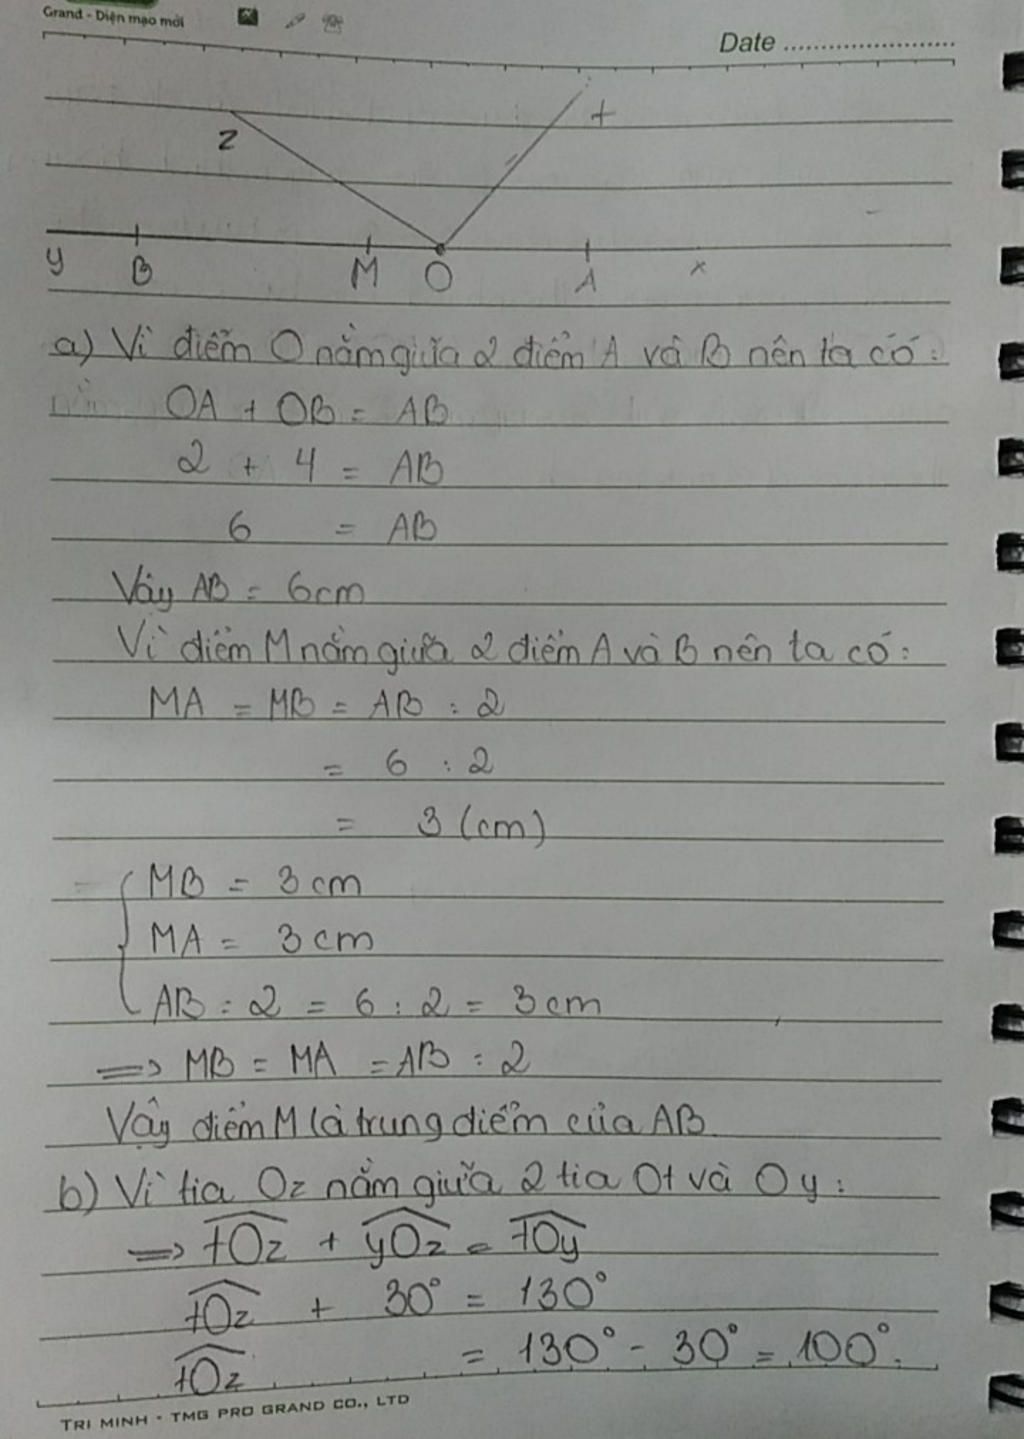 Grand - Diện mạo mới
Date
z
t
y B M O A x
a) Vì điểm O nằm giữa 2 điểm A và B nên ta có:
OA + OB = AB
2 + 4 = AB
6 = AB
Vậy AB = 6cm
Vì điểm M nằm giữa 2 điểm A và B nên ta có:
MA = MB = AB : 2
= 6 : 2
= 3 (cm)
MB = 3cm
MA = 3cm
AB : 2 = 6 : 2 = 3cm
=> MB = MA = AB : 2
Vậy điểm M là trung điểm của AB
b) Vì tia Oz nằm giữa 2 tia Ot và Oy:
=> tOz + yOz = tOy
tOz + 30° = 130°
tOz = 130° - 30° = 100°.
TRI MINH - TMG PRO GRAND CO., LTD